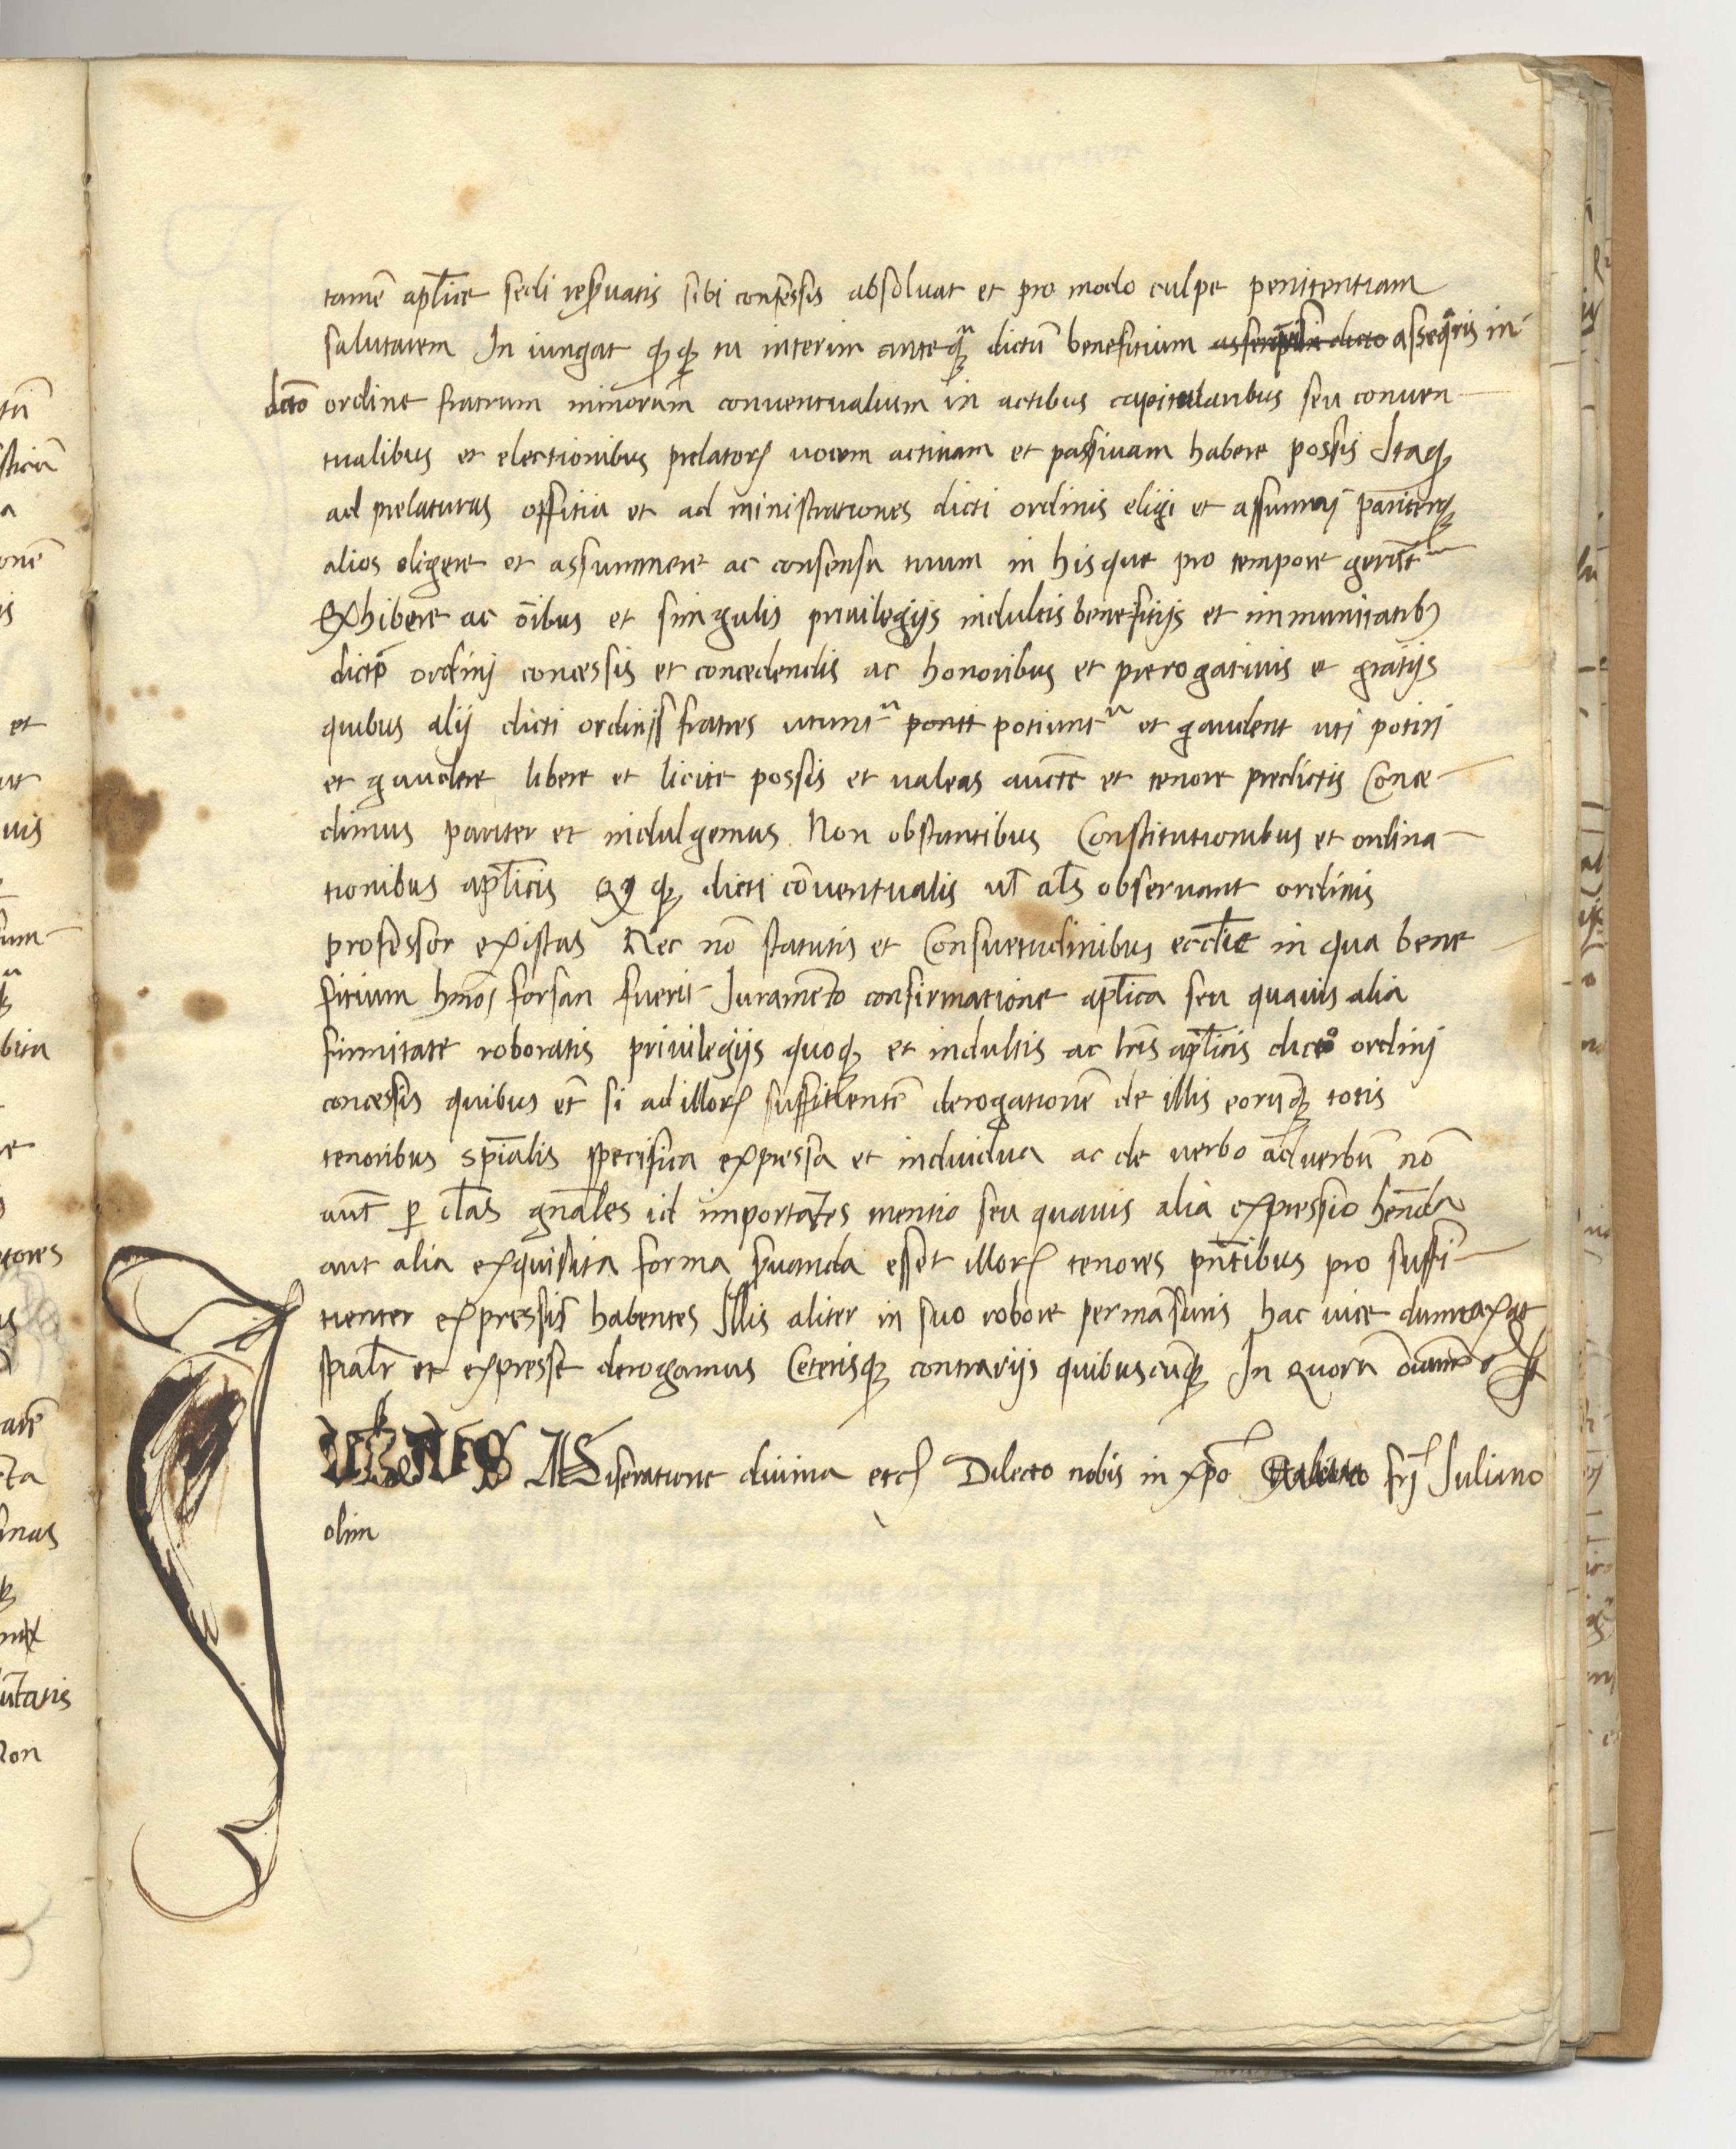 tamē apl̄ice sedi resp̱uatis sibi confessis absoluat et pro modo culpe penitentiam
salutarem In iungat qꝫ qꝫ tu interim anteqꝫ dictū benefitium assequaris in
dicto ordine fratrum minorum conuentualium in actibus capitularibus seu conuen
tualibus et electionibus prelatorꝝ uocem actiuam et passiuam habere possis Itaqꝫ
ad prelaturas offitia et ad ministrationes dicti ordinis eligi et assumi pariterqꝫ
alios eligere et assummere ac consensu tuum in hisque pro tempore gerūt
Exhibere ac ōibus et singulis priuilegijs indultis benefitijs et immunitatibꝫ
dicto ordinj concessis et concedendis ac honoribus et prerogatiuis et gratijs
quibus alij dicti ordinis fratres utunt potiunt et gaudent uti potiri
et gaudere libere et licite possis et ualeas auctē et tenore predictis Conce
dimus pariter et indulgemus Non obstantibus Constitutionibus et ordina
tionibus apl̄icis Qꝫ qꝫ dicti cōuentualis ul̄ al̄s obseruant ordinis
professor existas Nec nō statutis et Consuetudinibus eccl̄ie in qua bene
fitium hmōj forsan fuerit Juramēto confirmatione apl̄ica seu quauis alia
firmitate roboratis priuilegijs quoqꝫ et indultis ac lr̄is apl̄icis dicto ordinj
concessis quibus et̄ si ad illorꝝ suffitientē derogationē de illis eorūqꝫ totis
tenoribus sp̄ialis specifica expressa et indiuidua ac de uerbo ad uerbū nō
aut̄ ꝑ cl̄as gn̄ales id importātes mentio seu quauis alia expressio hēnda
aut alia exquisita forma s̱uanda esset illorꝝ tenores pn̄tibus pro suffi
tienter expressis habentes Illis aliter in suo robore permāsuris hac uice dumtaxat
sp̄ialr̄ et expresse derogamus Ceterisqꝫ contrarijs quibuscūqꝫ In quorū
Miseratione diuina etcꝫ Dilecto nobis in xp̄o frj Juliano
olim